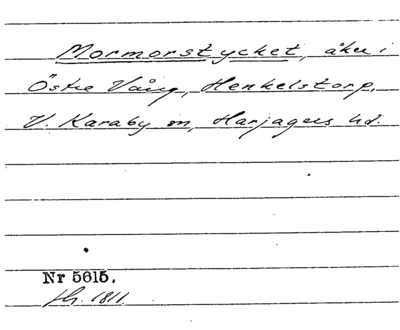 Mormorstycket, åker i
Östre Vång, Henkelstorp,
V. Karaby sn, Harjagers hd.
Nr 5615.
h. 1811.